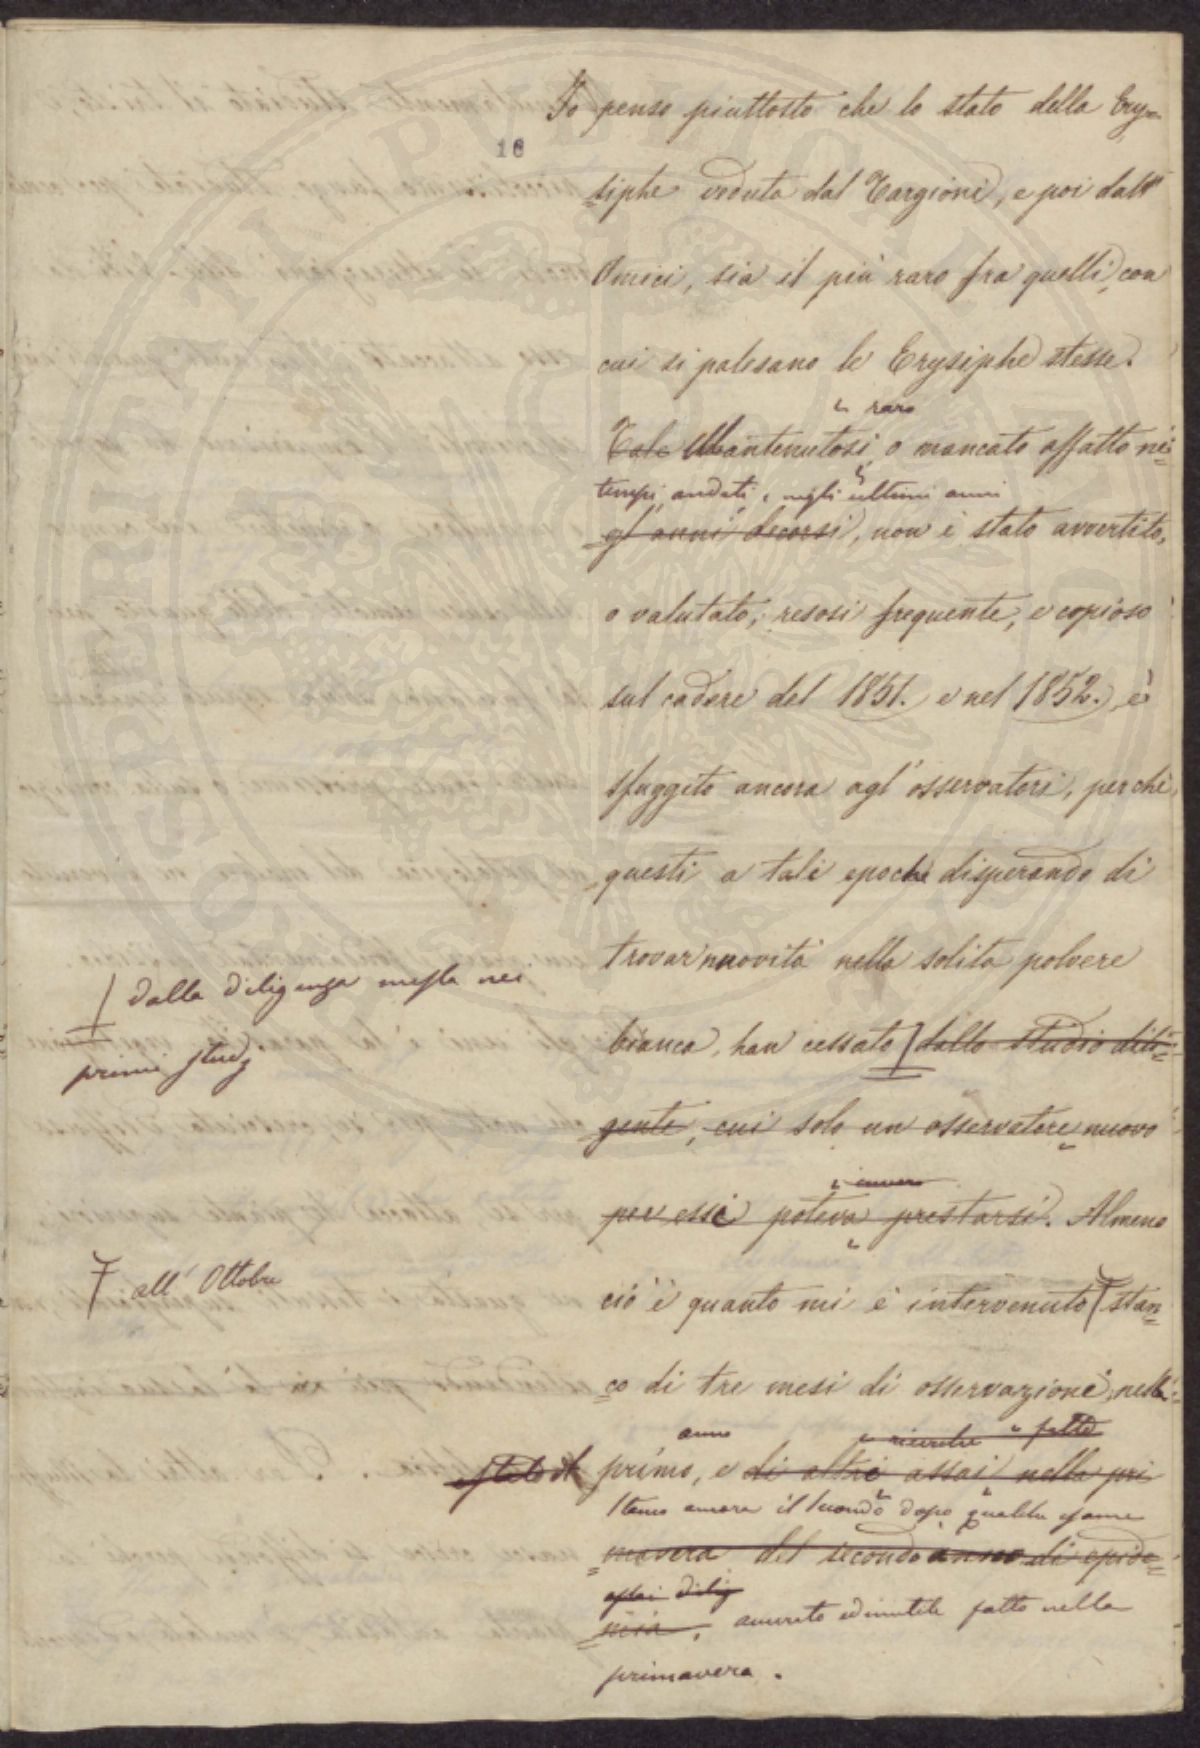 Io penso piuttosto che lo stato della Ery=
16
=siphe veduta dal Targioni, e poi dall'
Amici, sia il più raro fra quelli, con
cui si palesano le Erysiphe stesse.
raro
Tale Mantenutosi o mancato affatto ne=
tempi andati, e negli ultimi anni
=gl'anni decorsi, non è stato avvertito,
o valutato; resosi frequente, e copioso
sul cadere del 1851. e nel 1852. è
sfuggito ancora agl'osservatori, perchè
questi a tali epoche disperando di
trovar nuovità nella solita polvere
dalla diligenza messa nei
primi studj
bianca, han cessato dallo studio dili=
gente, cui solo un osservatore nuovo
per essi poteva prestarsi. Almeno
all'Ottobre
ciò è quanto mi è intervenuto stan=
=co di tre mesi di osservazione, nell=
anno ricerche fatte
primo, e di altre assai nella pri
stanco ancora il secondo dopo qualche esame
=mavera del secondo anno di epide=
assai dilig
=mia, accurato ed inutile fatto nella
primavera.